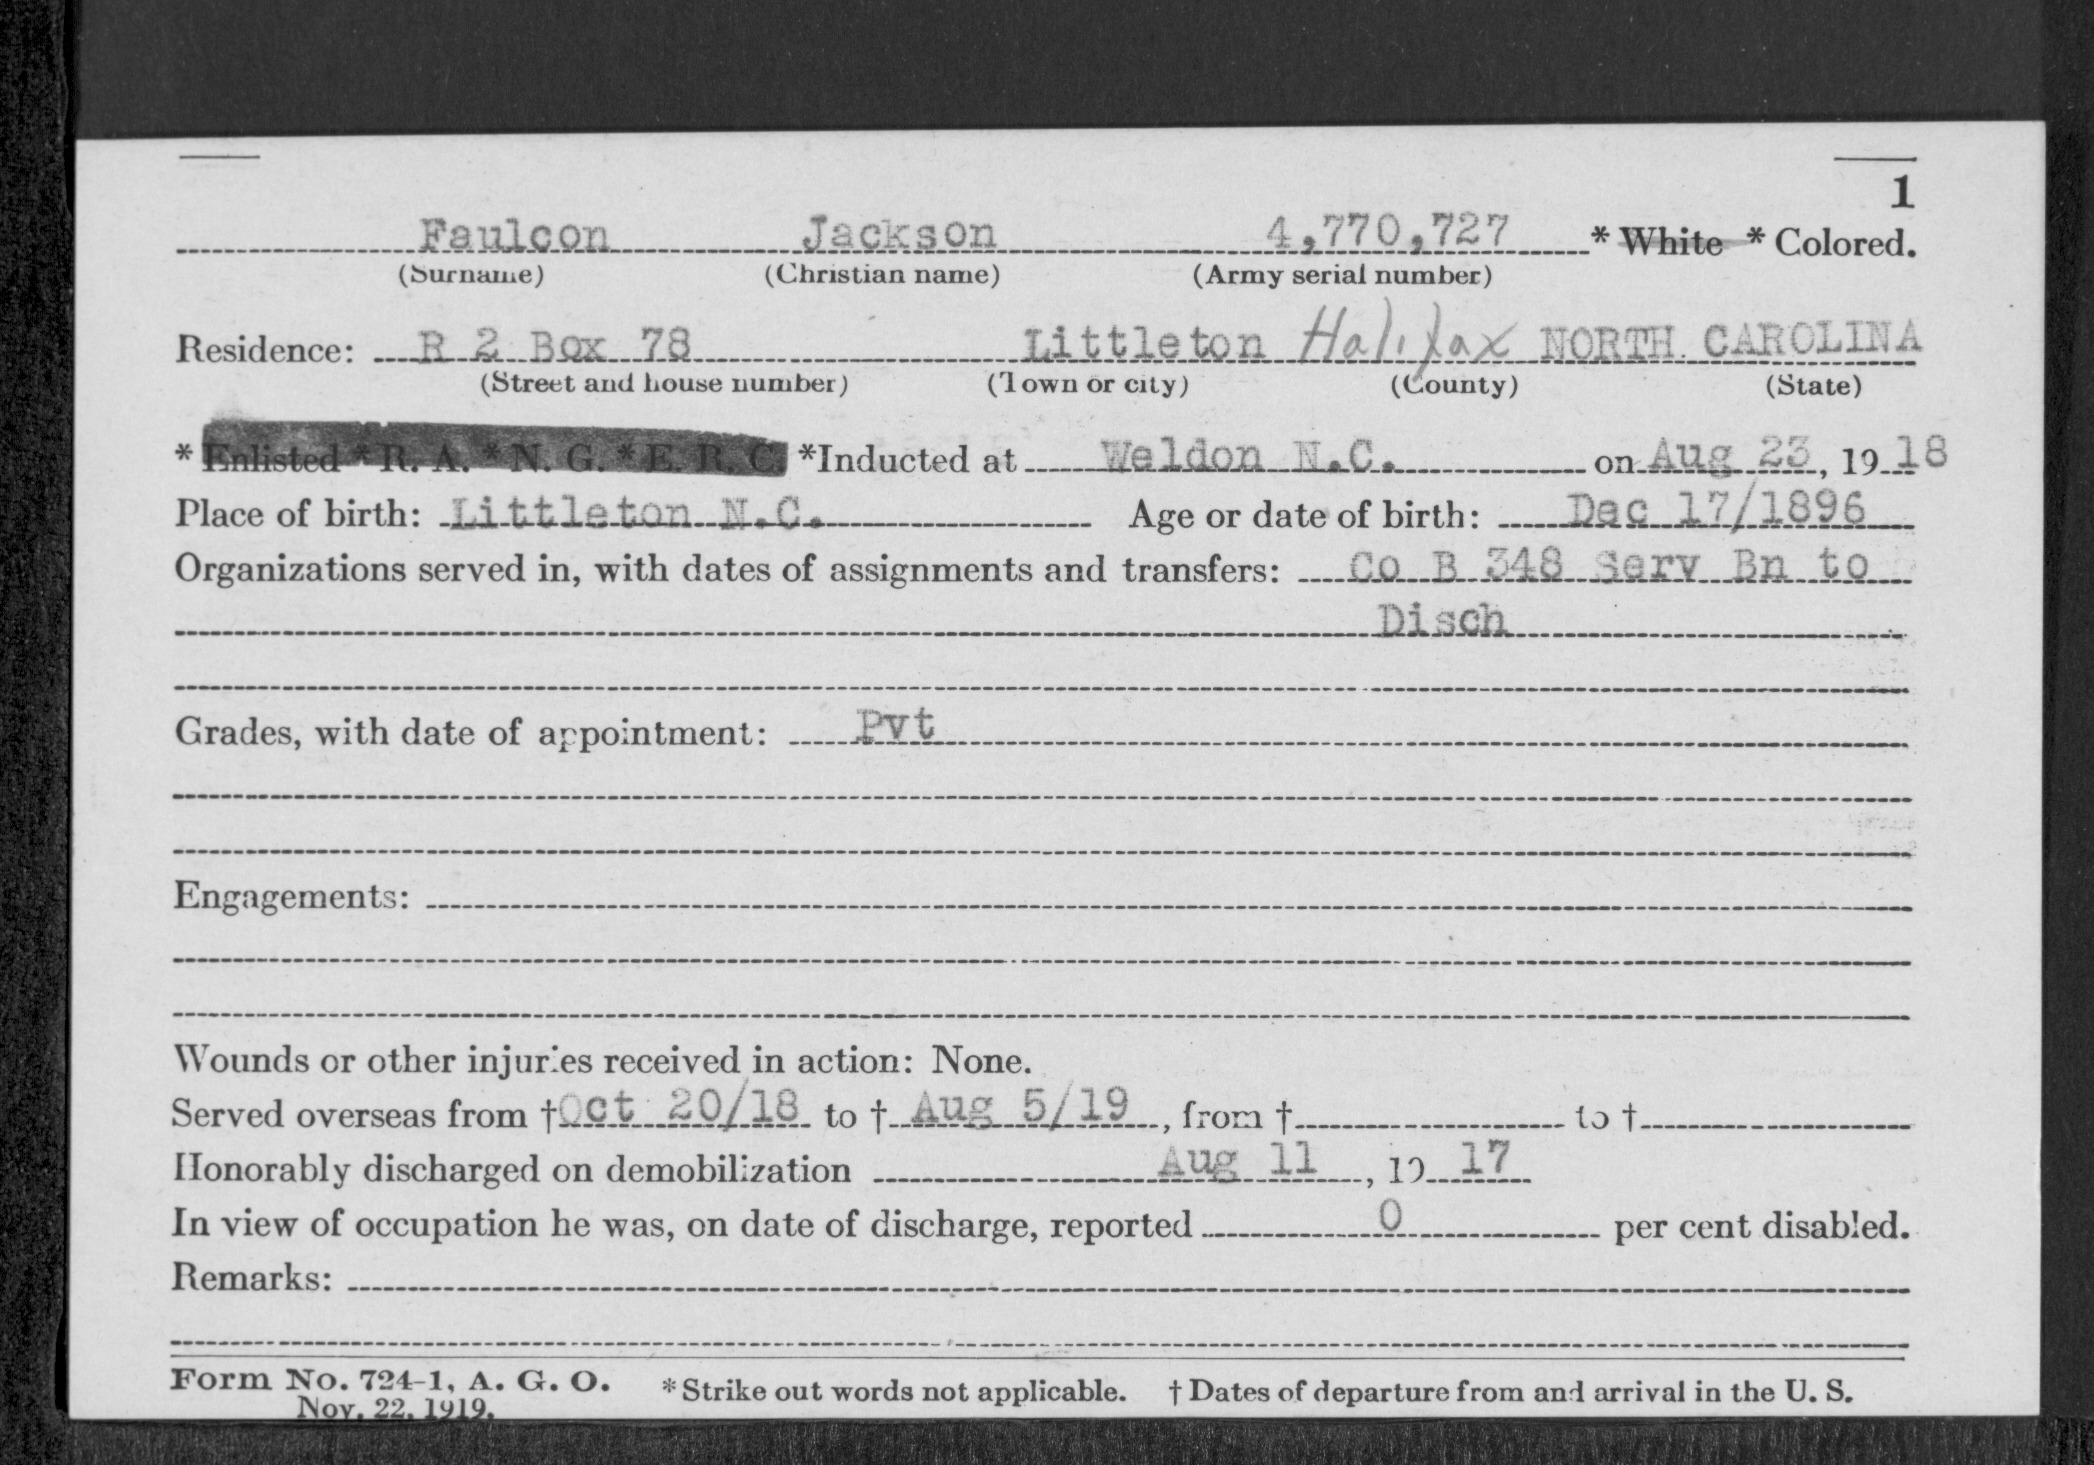 1
Faulcon Jackson 4,770,727 * White * Colored.
(Surname) (Christian name) (Army serial number)
Residence: R 2 Box 78 Littleton Halifax NORTH CAROLINA
(Street and house number) (Town or city) (County) (State)
* Enlisted * R. A. * N. G. * E. R. C. *Inducted at Weldon N.C. on Aug 23, 19 18
Place of birth: Littleton N.C. Age or date of birth: Dec 17/1896
Organizations served in, with dates of assignments and transfers: Co B 348 Serv Bn to
Disch
Grades, with date of appointment: Pvt
Engagements:
Wounds or other injuries received in action: None.
Served overseas from † Oct 20/18 to † Aug 5/19, from † to †
Honorably discharged on demobilization Aug 11, 19 17
In view of occupation he was, on date of discharge, reported 0 per cent disabled.
Remarks:
Form No. 724-1, A. G. O. * Strike out words not applicable. † Dates of departure from and arrival in the U. S.
Nov. 22, 1919.